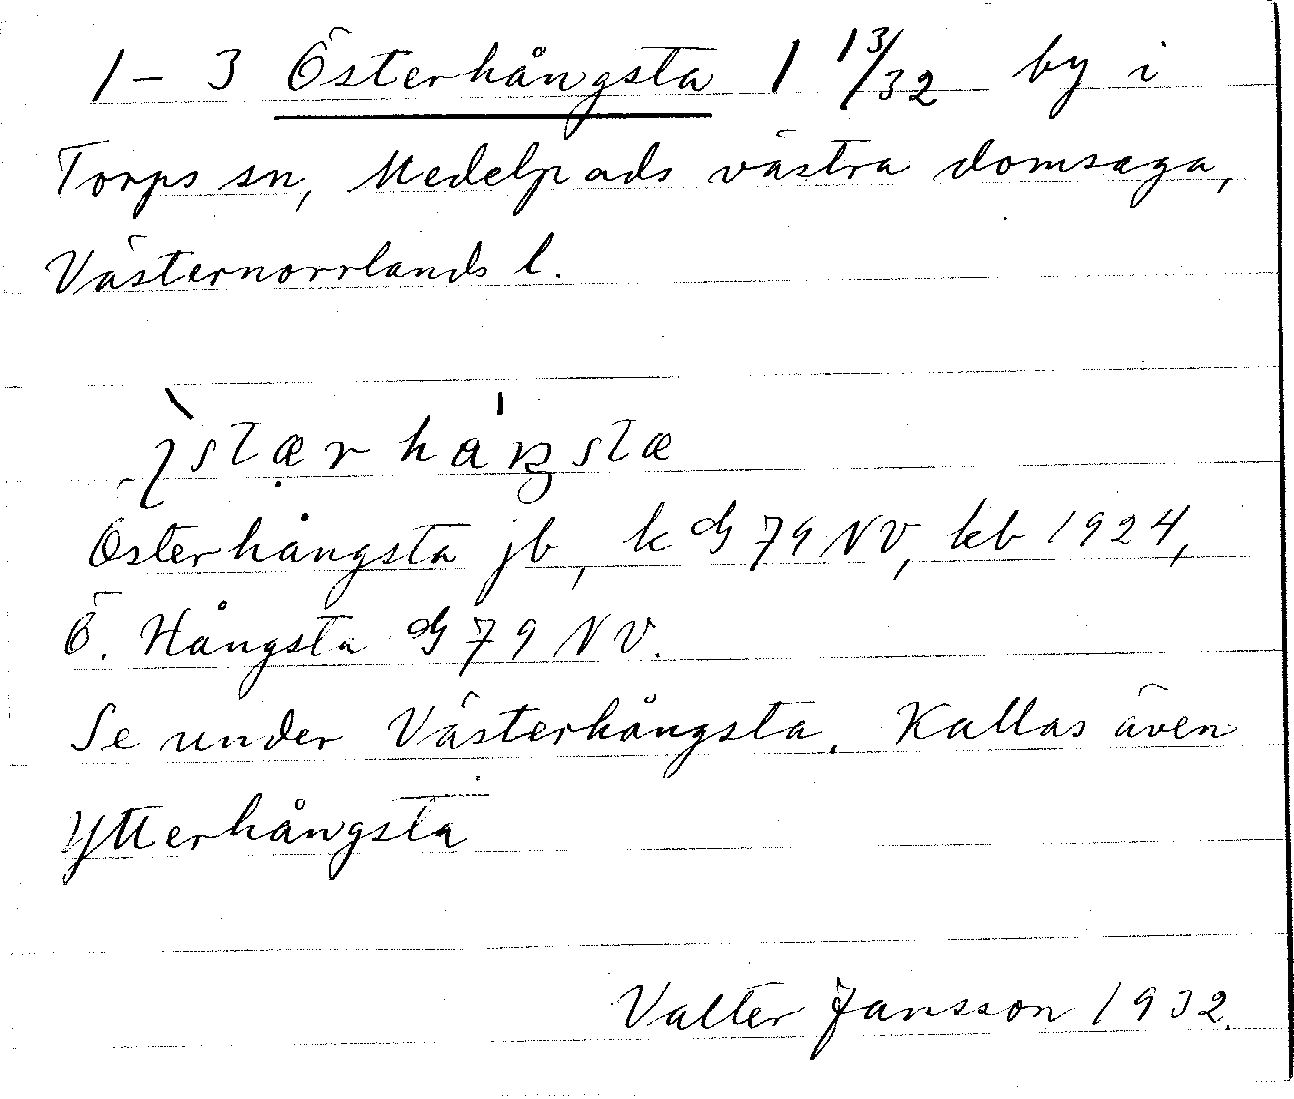 1-3 Österhångsta 1 13/32 by i
Torps sn, Medelpads västra domsaga,
Västernorrlands l.
Österhångsta jb, k G 79 NV, kb 1924,
Ö. Hångsta G 79 NV.
Se under Västerhångsta. Kallas även
Ytterhångsta
Valter Jansson 1932.